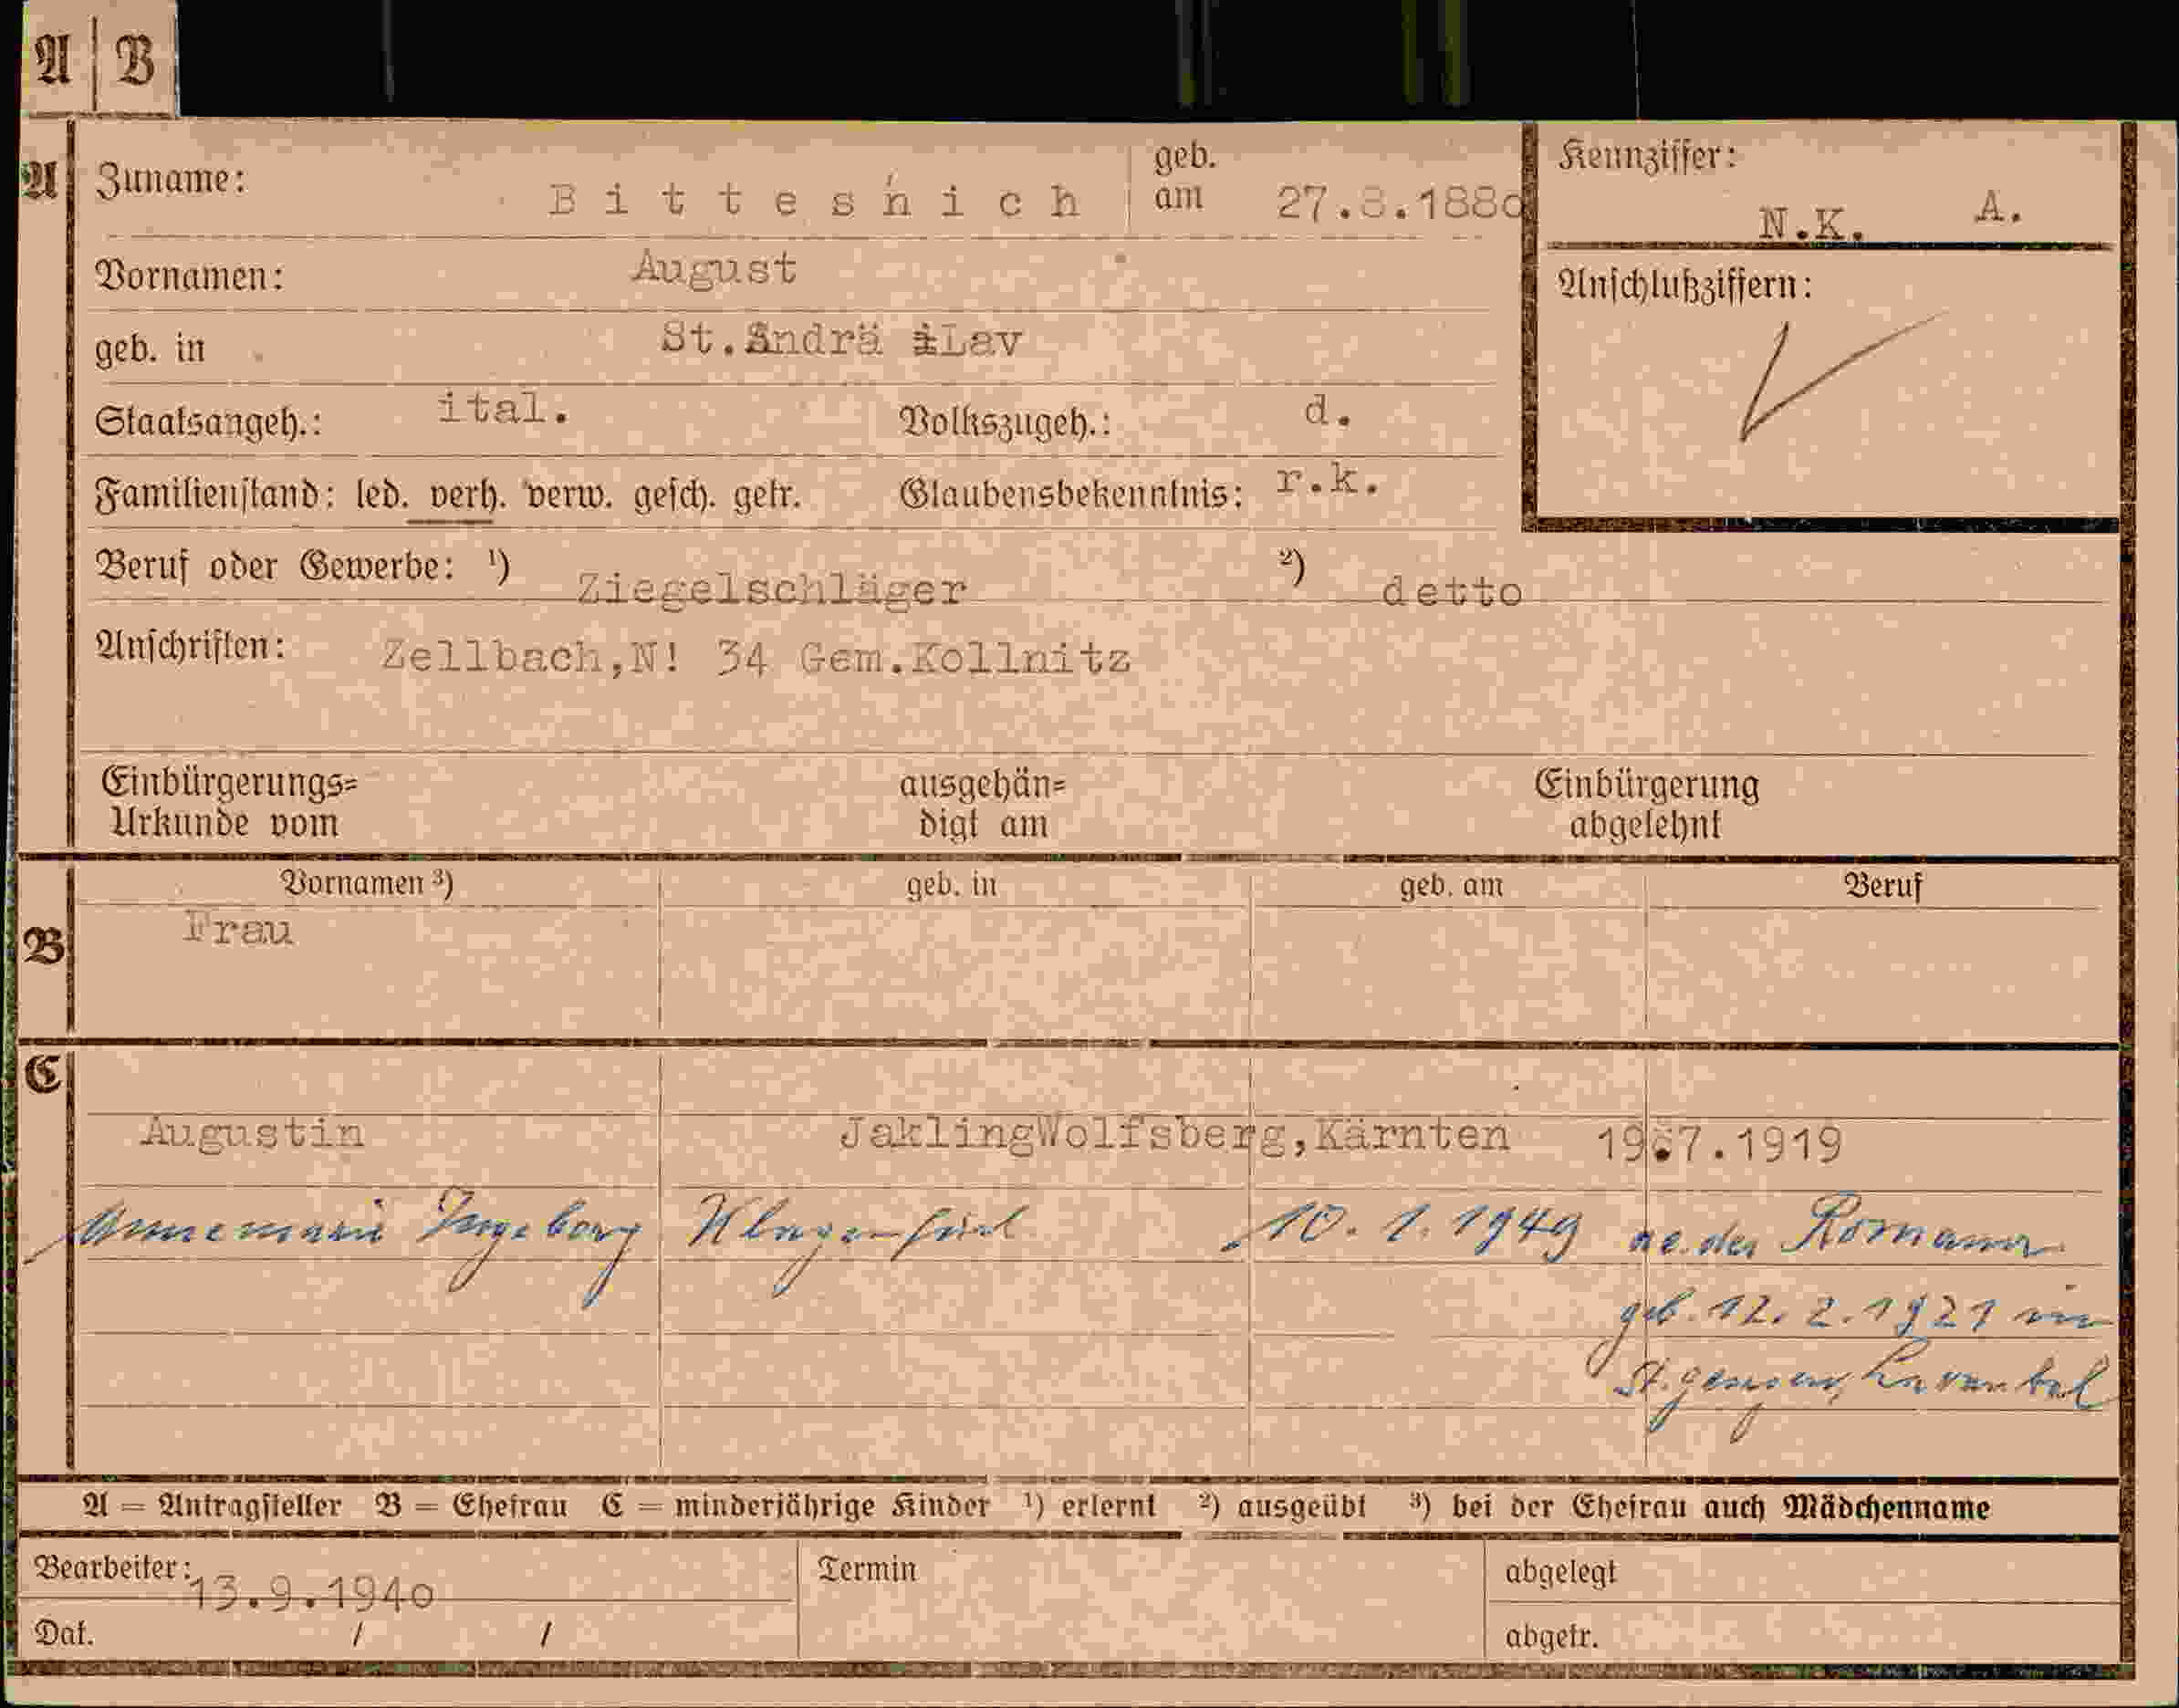 A | B
A
Zuname: Bittesnich geb. am 27.8.1880
Kennziffer: N.K. A.
Vornamen: August
Anschlußziffern:
geb. in St.Andrä iLav
Staatsangeh.: ital. Volkszugeh.: d.
Familienstand: led. verh. verw. gesch. getr. Glaubensbekenntnis: r.k.
Beruf oder Gewerbe: ¹) Ziegelschläger ²) detto
Anschriften: Zellbach,N! 34 Gem.Kollnitz
Einbürgerungs= ausgehän= Einbürgerung
Urkunde vom digt am abgelehnt
B
Vornamen ³) geb. in geb. am Beruf
Frau
C
Augustin JaklingWolfsberg,Kärnten 19.7.1919
Annemarie Ingeborg Klagenfurt 10. 1. 1949 der Romana
geb. 12. 2. 1921 in
St. Lavanttal
A = Antragsteller B = Ehefrau C = minderjährige Kinder ¹) erlernt ²) ausgeübt ³) bei der Ehefrau auch Mädchenname
Bearbeiter: 13.9.1940 Termin abgelegt
Dat. / / abgetr.